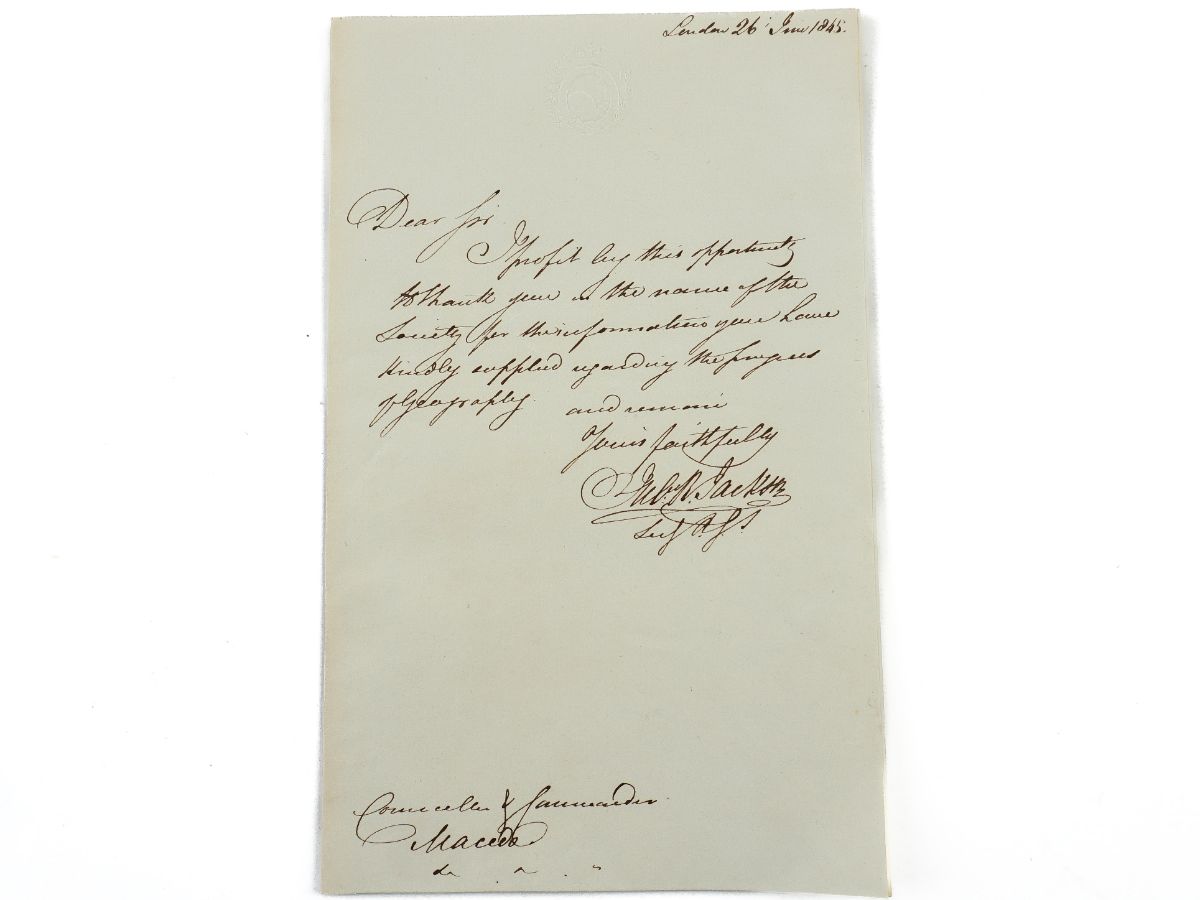 London 26 June 1845.
Dear Sir
I profit by this opportunity
to thank you in the name of the
Society for the information you have
kindly supplied regarding the progress
of Geography. and remain
Yours faithfully
R. Jackson
Secy R.G.S
Councellor & Commander
Macedo